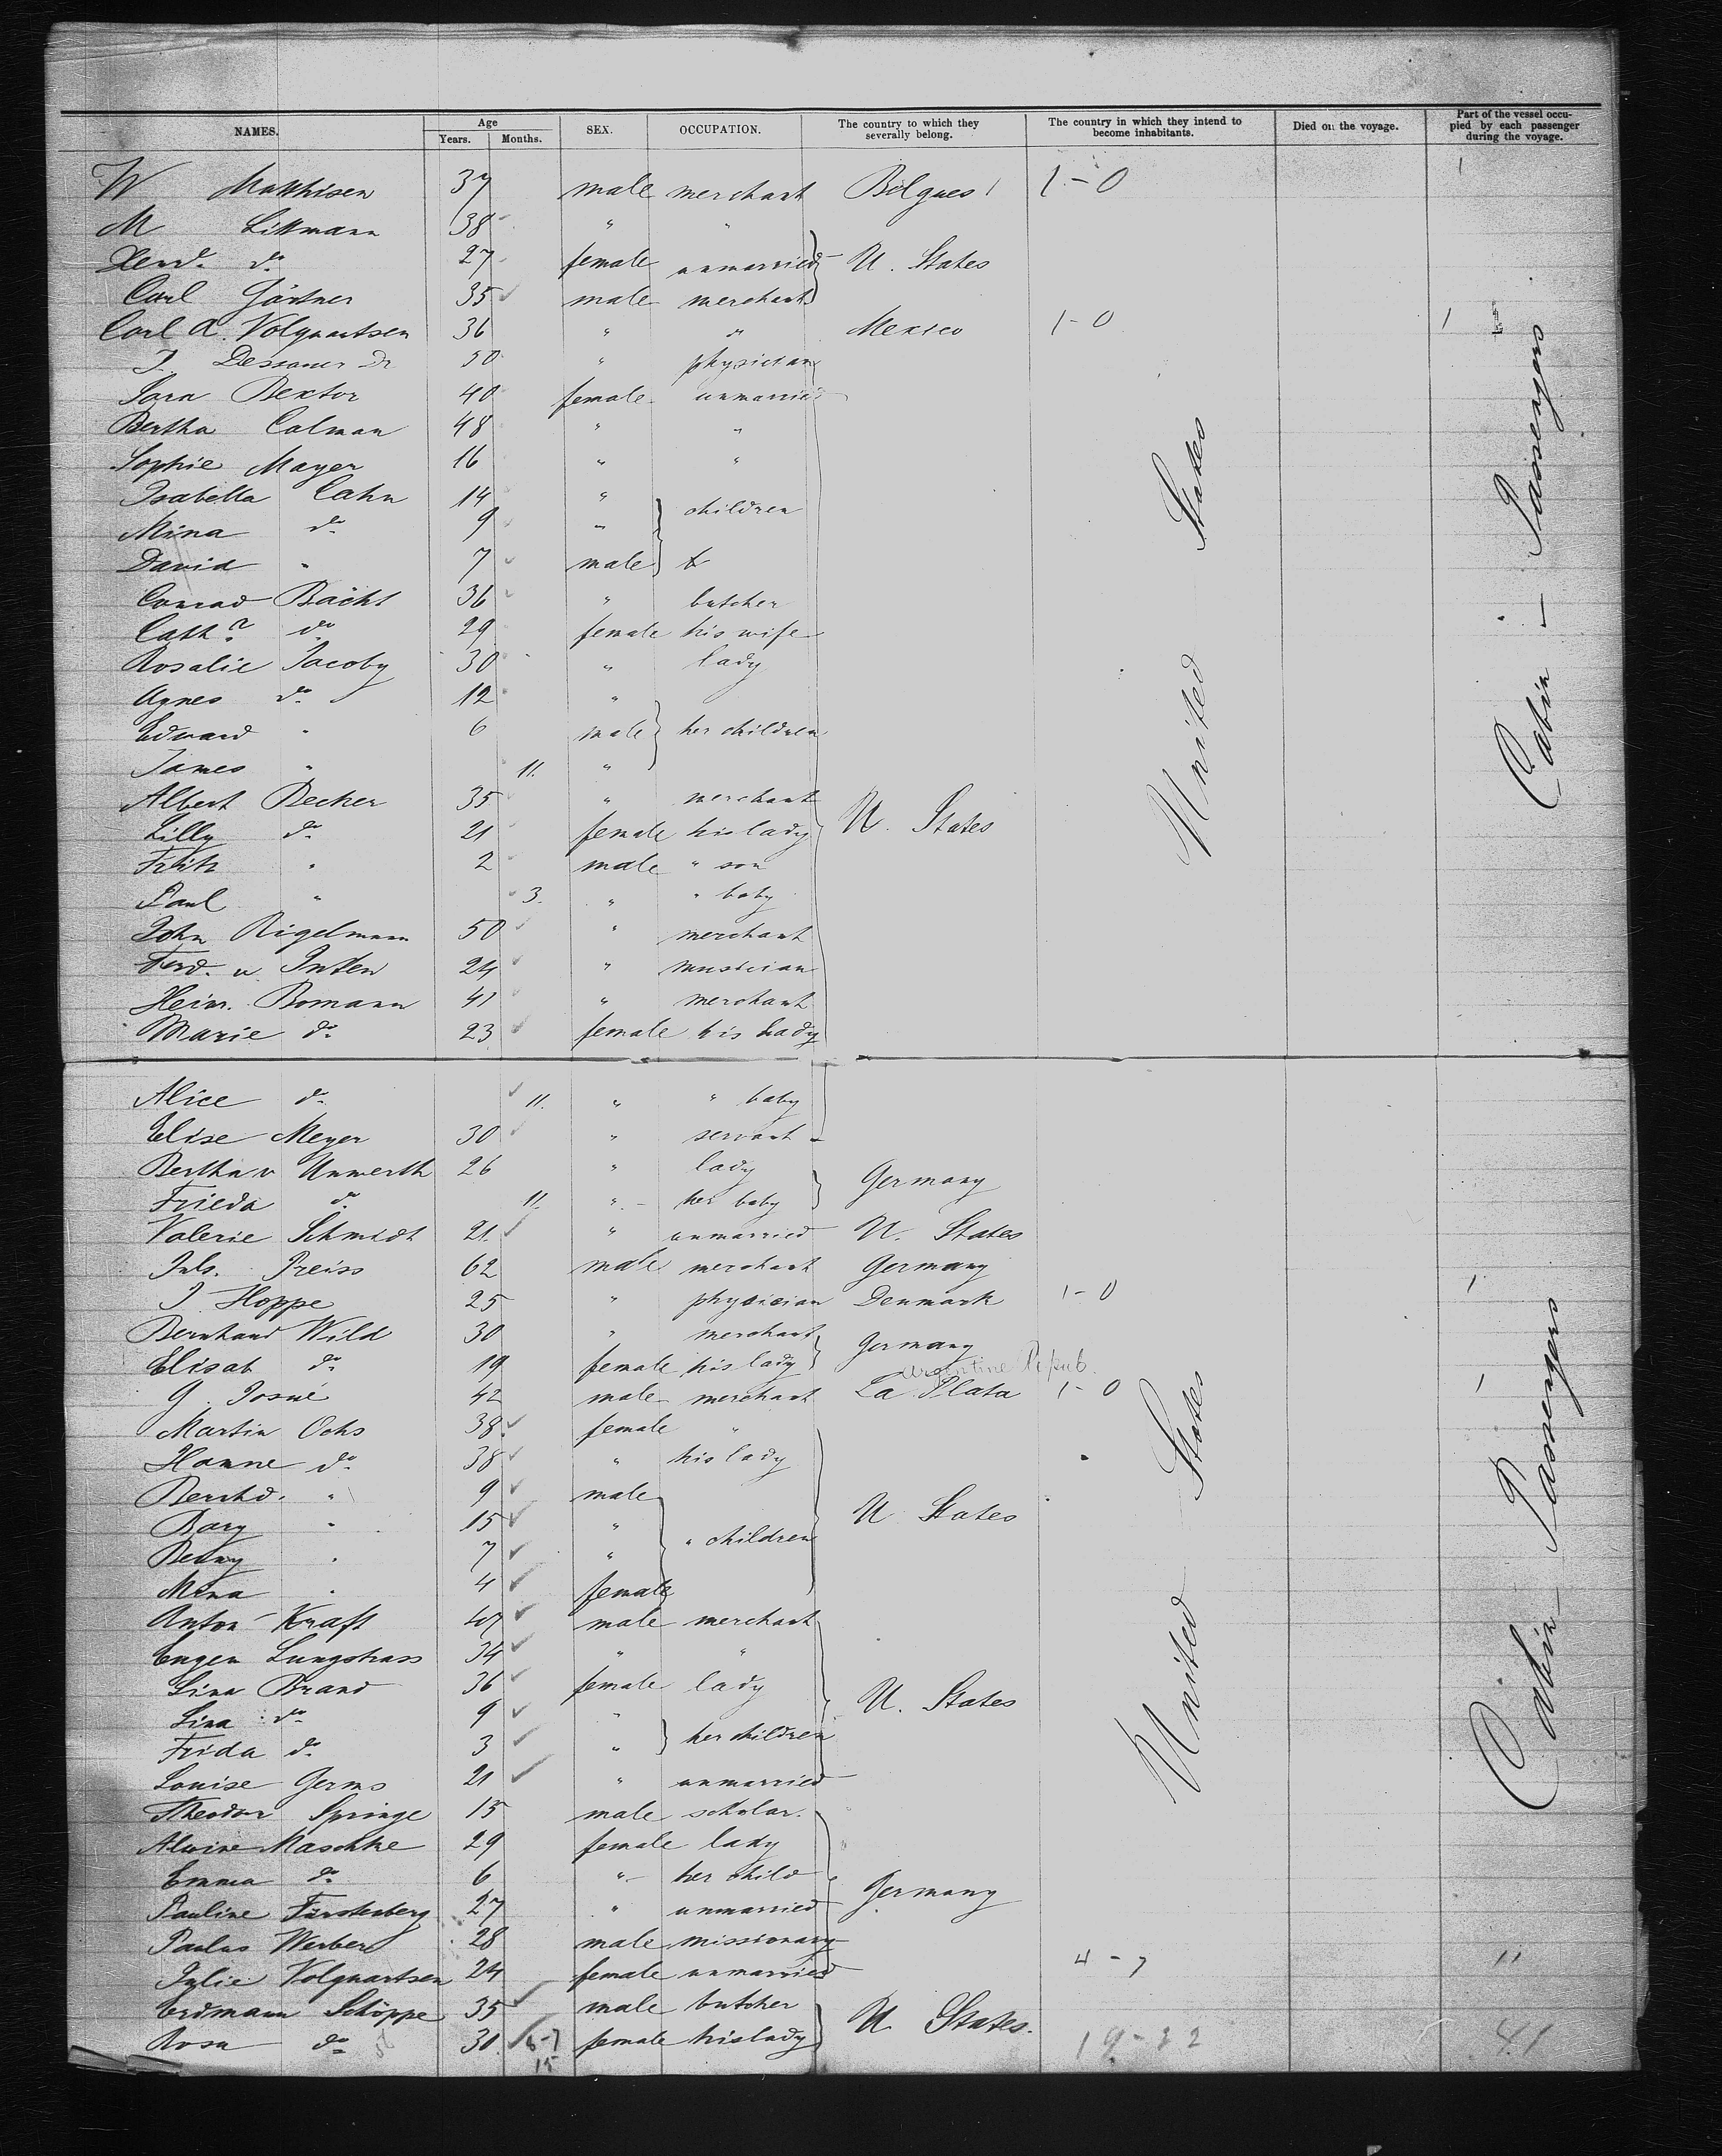 NAMES. Age Years. Months. SEX. OCCUPATION. The country to which they severally belong. The country in which they intend to become inhabitants. Died on the voyage. Part of the vessel occupied by each passenger during the voyage.
W Matthisen 37 male merchant 1-0 1
M Littmann 38 " "
do 27 female unmarried U. States
Carl Gärtner 35 male merchant
Carl A. Volquartsen 36 " " Mexico 1-0 1
J. Dessauer Dr 50 " physician
Sara Rextor 40 female unmarried
Bertha Colman 48 " "
Sophie Mayer 16 " "
Isabella Cahn 14 " children
Mina do 9 "
David " 7 male
Conrad Bächt 36 " butcher
Cath. do 29 female his wife
Rosalie Jacoby 30 " lady
Agnes do 12 "
Edward " 6 male her children
James " 11. "
Albert Becker 35 " merchant
Lilly do 21 female his lady U. States
Fritz " 2 male " son
Paul " 3. " " baby
John Rigelmann 50 " merchant
Ferd. v Inten 24 " musician
Heinr. Bomann 41 " merchant
Marie do 23 female his lady
Alice do 11. " " baby
Elise Meyer 30 " servant
Bertha v Unwerth 26 " lady Germany
Frieda do 11. " her baby
Valerie Schmidt 21 " unmarried U. States
Juls. Preiss 62 male merchant Germany
J. Hoppe 25 " physician Denmark 1-0 1
Bernhard Wild 30 " merchant Germany
Elisab do 19 female his lady
Argentine Repub.
G. Josué 42 male merchant La Plata 1-0 1
Martin Ochs 38 female "
Hanne do 38 " his lady
Berthd. " 9 male
Bary " 15 " " children U States
Benny " 7 "
Mina " 4 female
Anton Kraft 47 male merchant
Eugen Lungstrass 34 " "
Lina Brand 36 female lady U. States
Lina do 9 " her children
Frida do 3 "
Louise Germs 21 " unmarried
Theodor Springe 15 male scholar.
Alwine Maschke 29 female lady
Emma do 6 " her child Germany
Pauline Fürstenberg 27 " unmarried
Paulus Werber 28 male missionary
Julie Volquartsen 24 female unmarried 4-7 11
Erdmann Schöppe 35 male butcher U States.
Rosa do 30 6-7 female his lady 19-22 41
15
United States
United States
Cabin - Passengers
Cabin - Passengers